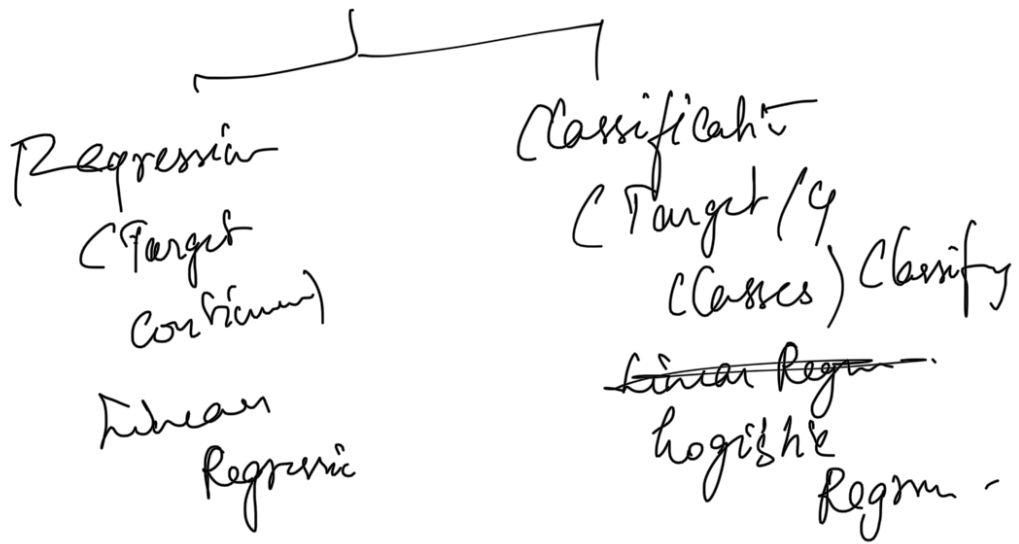 Regression
(Target
continuous)
Linear
Regression
Classification
(Target / y
Classes) Classify
Linear Regression
Logistic
Regression